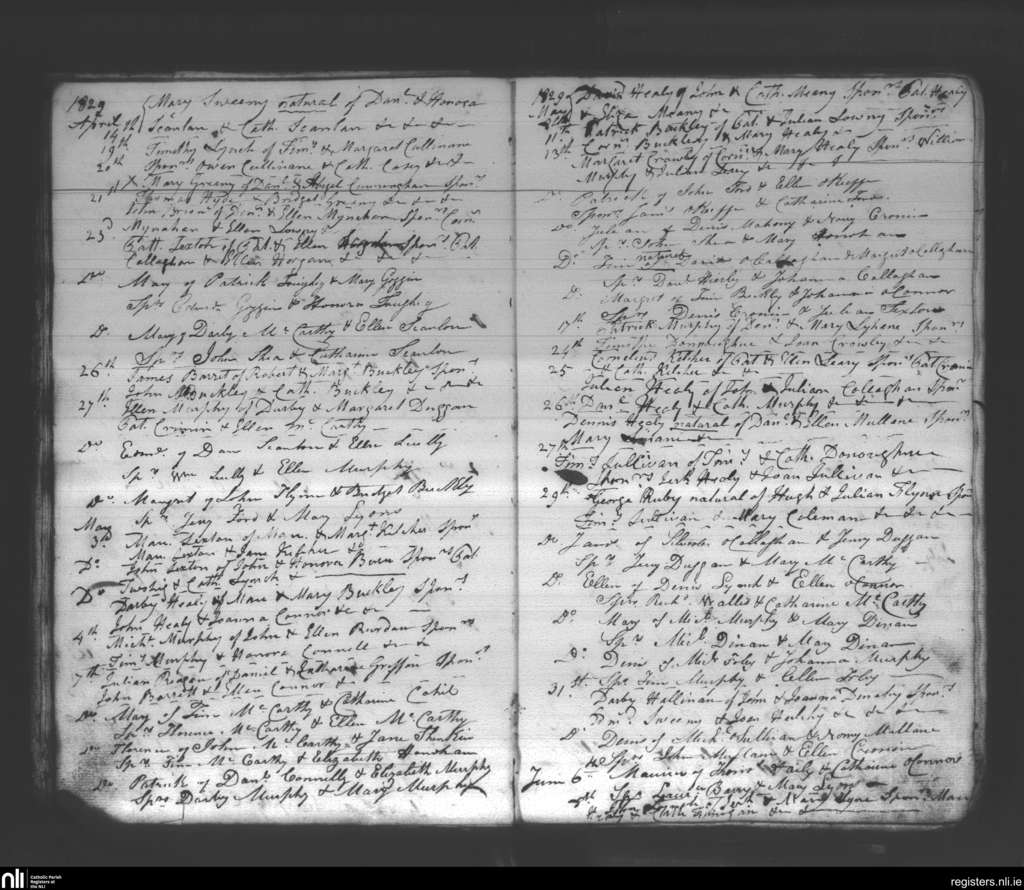 1829 Mary Sweeny natural of Danl. & Honora
April 14th Scanlan & Cath. Scanlan &c &c &c
19th Timothy Lynch of Timy. & Margaret Cullinane
20th Sponrs. Owen Cullinane & Cath. Casey &c &c
X Mary Greany of Danl. & Cunninghan Sponrs.
21 Thomas Hyde & Bridget Greany &c &c &c
John of Denis & Ellen Mynehan Sponrs. Corns.
23d Mynahan & Ellen Lowny
Cath. Sexton of Pat. & Ellen Sponrs. Pat
Callaghan & Ellen Horgan &c &c &c
Do Mary of Patrick Toughy & Mary Goggin
Sprs Goggin & Honora Toughy
D. Mary of Darby McCarthy & Ellen Scanlon
Sprs John Shea & Catharine Scanlon
26th James Barret of Robert & Margt. Buckley Sponrs
John Buckley & Cath. Buckley &c &c &c
27th Ellen Murphy of Darby & Margaret Duggan
Pat. Cronin & Ellen McCarthy
Do Edmd. of Dan Scanlon & Ellen Scully
Sprs Wm Lully & Ellen Murphy
Do Margret of John Flynn & Bridget Buckley
Sprs Jery Ford & Mary Lyons
May 3d Mary Sexton of Maur. & Margt. Kilcher Sponrs
Maur. Sexton & Jane Kelcher &c
Do John Sexton of John & Honora Sponrs Pat
Twohig & Cath. Lynch &
Do Darby Healy of Maur & Mary Buckley Sponrs
John Healy & Joanna Connor &c &c
4th Michl. Murphy of John & Ellen Riordan Sponrs
Timy. Murphy & Hanora Connell &c &c
7th Julian Reagan of Daniel & Catharine Griffin Sponrs
John Barrett & Ellen Connor &c
Do Mary of Tim McCarthy & Catharine Cahil
Sprs Florence McCarthy & Ellen McCarthy
Do Florence of John McCarthy & Jane
Sprs Tim McCarthy & Elizabeth Honohan
Do Patrick of Danl. Connelly & Elizabeth Murphy
Sprs Darby Murphy & Mary Murphy
1829 David Healy of John & Cath. Meany Sponrs. Pat. Healy
May & Eliza Meany &c
11th Patrick Buckley of Pat. & Julian Lowny Sponrs
Corns. Buckley & Mary Healy &c
13th Margaret Crowley of Corns. & Mary Healy Sponrs William
Murphy & Julian &c
Do Patrick of John Ford & Ellen OKeiffe
Sponrs James OKeiffe & Catharine Ford
Do Julian of Denis Mahony & Nony Cronin
Sprs John Shea & Mary Honohan
Do Tim natural of David OCallaghan & Margret OCallaghan
Sprs Danl Healy & Johanna Callaghan
D. Margret of Tim Buckly & Johanna OConnor
Sprs Denis Cronin & Julian Sexton
17th Patrick Murphy of Denl. & Mary Lyhane Sponrs
Timothy Donoughue & Joan Crowley &c &c
24th Cornelius Kelcher of Pat & Ellen Leary Sponrs Pat Cronin
25 & Cath. Kilcher &c &c
Julien Healy of John & Julian Callaghan Sponr
26th Danl. Healy & Cath. Murphy &c &c &c
Dennis Healy natural of Danl. & Ellen Mullane Sponrs
Mary &c
27th Timy. Sullivan of Timy. & Cath. Donoughue
Sponrs Healy & Joan Sullivan &c
29th George Ruby natural of Hugh & Julian Flynn Sponr
Timy. Sullivan & Mary Coleman &c &c &c
Do James of OCallaghan & Jenny Duggan
Sps. Jery Duggan & Mary McCarthy
D. Ellen of Denis Lynch & Ellen OConnor
Sprs Richd. Wallis & Catharine McCarthy
Do Mary of Mick Murphy & Mary Dinan
Sprs Mick Dinan & Mary Dinan
D. Denis of Mick Foley & Johanna Murphy
Sps Tim Murphy & Ellen Foley
31st Darby Hallinan of John & Joanna Dinahy Sponrs
Edmd. Sweeny & Joan Healihy &c &c &c
D. Denis of Mick Sullivan & Nony Mullane
Sprs John Mullane & Ellen Cronin
June 6th Maurice of Thoms. Daily & Catharine OConnor
Sprs Barry & Mary Lyon
& Mary Hyne Sponrs Maur
& Cath. &c &c
nli Catholic Parish Registers at the NLI
registers.nli.ie